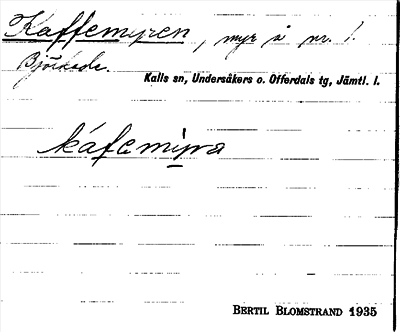 Kaffemyren, myr å nr. 1.
Björkede.
Kalls sn, Undersåkers o. Offerdals tg, Jämtl. l.
káfemyra
BERTIL BLOMSTRAND 1935